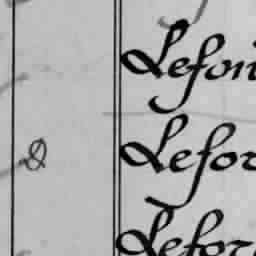 Lefon
Lefor
Lefor